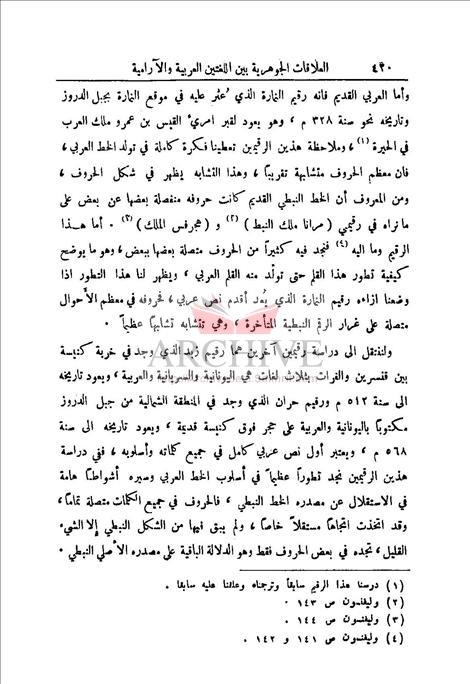 ٤٢٠ العلاقات الجوهرية بين اللغتين العربية والآرامية
وأما العربي القديم فانه رقيم النمارة الذي عُثر عليه في موقع النمارة بجبل الدروز
وتاريخه نحو سنة ٣٢٨ م ، وهو يعود لقبر امرىء القيس بن عمرو ملك العرب
في الحيرة (١) ، وملاحظة هذين الرقيمين تعطينا فكرة كاملة في تولد الخط العربي ،
فان معظم الحروف متشابهة تقريبًا ، وهذا التشابه يظهر في شكل الحروف ،
ومن المعروف أن الخط النبطي القديم كانت حروفه منفصلة بعضها عن بعض على
ما نراه في رقيمي ( مرانا ملك النبط ) (٢) و ( هجرفس الملك ) (٣) . أما هـذا
الرقيم وما اليه (٤) فنجد فيه كثيرًا من الحروف متصلة بعضها ببعض ، وهو ما يوضح
كيفية تطور هذا القلم حتى تولّد منه القلم العربي ، ويظهر لنا هذا التطور اذا
وضعنا ازاءه رقيم النمارة الذي يُعد أقدم نص عربي ، فحروفه في معظم الأحوال
متصلة على غرار الرقم النبطية المتأخرة ، وهي تتشابه تشابهًا عظيمًا .
ARCHIVE
ولننتقل الى دراسة رقيمين آخرين هما رقيم زبد الذي وجد في خربة كنيسة
بين قنسرين والفرات بثلاث لغات هي اليونانية والسريانية والعربية ، ويعود تاريخه
الى سنة ٥١٢ م ورقيم حران الذي وجد في المنطقة الشمالية من جبل الدروز
مكتوبًا باليونانية والعربية على حجر فوق كنيسة قديمة ، ويعود تاريخه الى سنة
٥٦٨ م ، ويعتبر أول نص عربي كامل في جميع كلماته وأسلوبه ، ففي دراسة
هذين الرقيمين نجد تطورًا عظيمًا في أسلوب الخط العربي وسيره أشواطًا هامة
في الاستقلال عن مصدره الخط النبطي ، فالحروف في جميع الكلمات متصلة تمامًا ،
وقد اتخذت اتجاهًا مستقلًا خاصًا ، ولم يبق فيها من الشكل النبطي إلا الشيء
القليل ، تجده في بعض الحروف فقط وهو الدلالة الباقية على مصدره الأصلي النبطي .
(١) درسنا هذا الرقيم سابقًا وترجمناه وعلقنا عليه سابقًا .
(٢) وليفنسون ص ١٤٣ .
(٣) وليفنسون ص ١٤٤ .
(٤) وليفنسون ص ١٤١ و ١٤٢ .